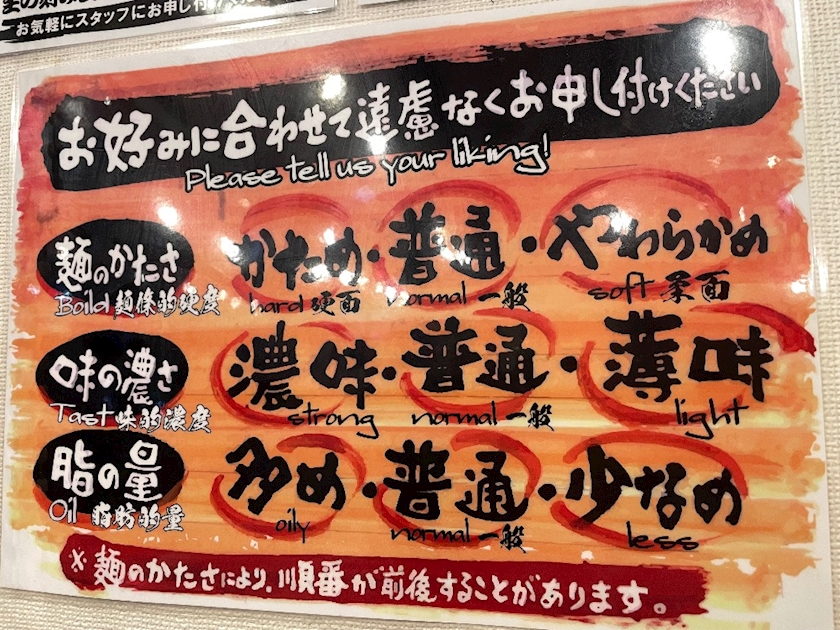 お気軽にスタッフにお申し付
お好みに合わせて遠慮なくお申し付けください
Please tell us your liking!
麺のかたさ かため・普通・やわらかめ
Boild 麵條的硬度 hard 硬面 normal 一般 soft 柔面
味の濃さ 濃味・普通・薄味
Tast 味的濃度 strong normal 一般 light
脂の量 多め・普通・少なめ
Oil 脂肪的量 oily normal 一般 less
※麺のかたさにより、順番が前後することがあります。